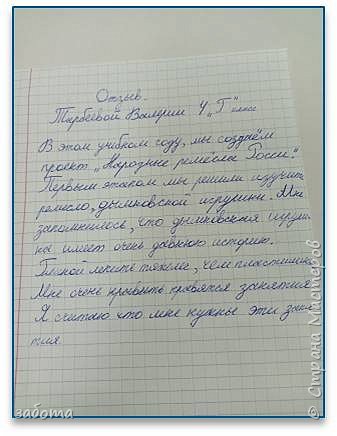 Отзыв.
Тарбеевой Валерии 4 „Г" класс
В этом учебном году, мы создаём
проект „Народные ремесла Росси".
Первым этапом мы решили изучить
ремесло, дымковской игрушки. Мне
запомнилось, что дымковская игруш-
ка имеет очень давнюю историю.
Глиной лепить тяжелее, чем пластилином
Мне очень нравятся занятия
Я считаю что мне нужны эти заня
тия
забота
© Страна Мастеров